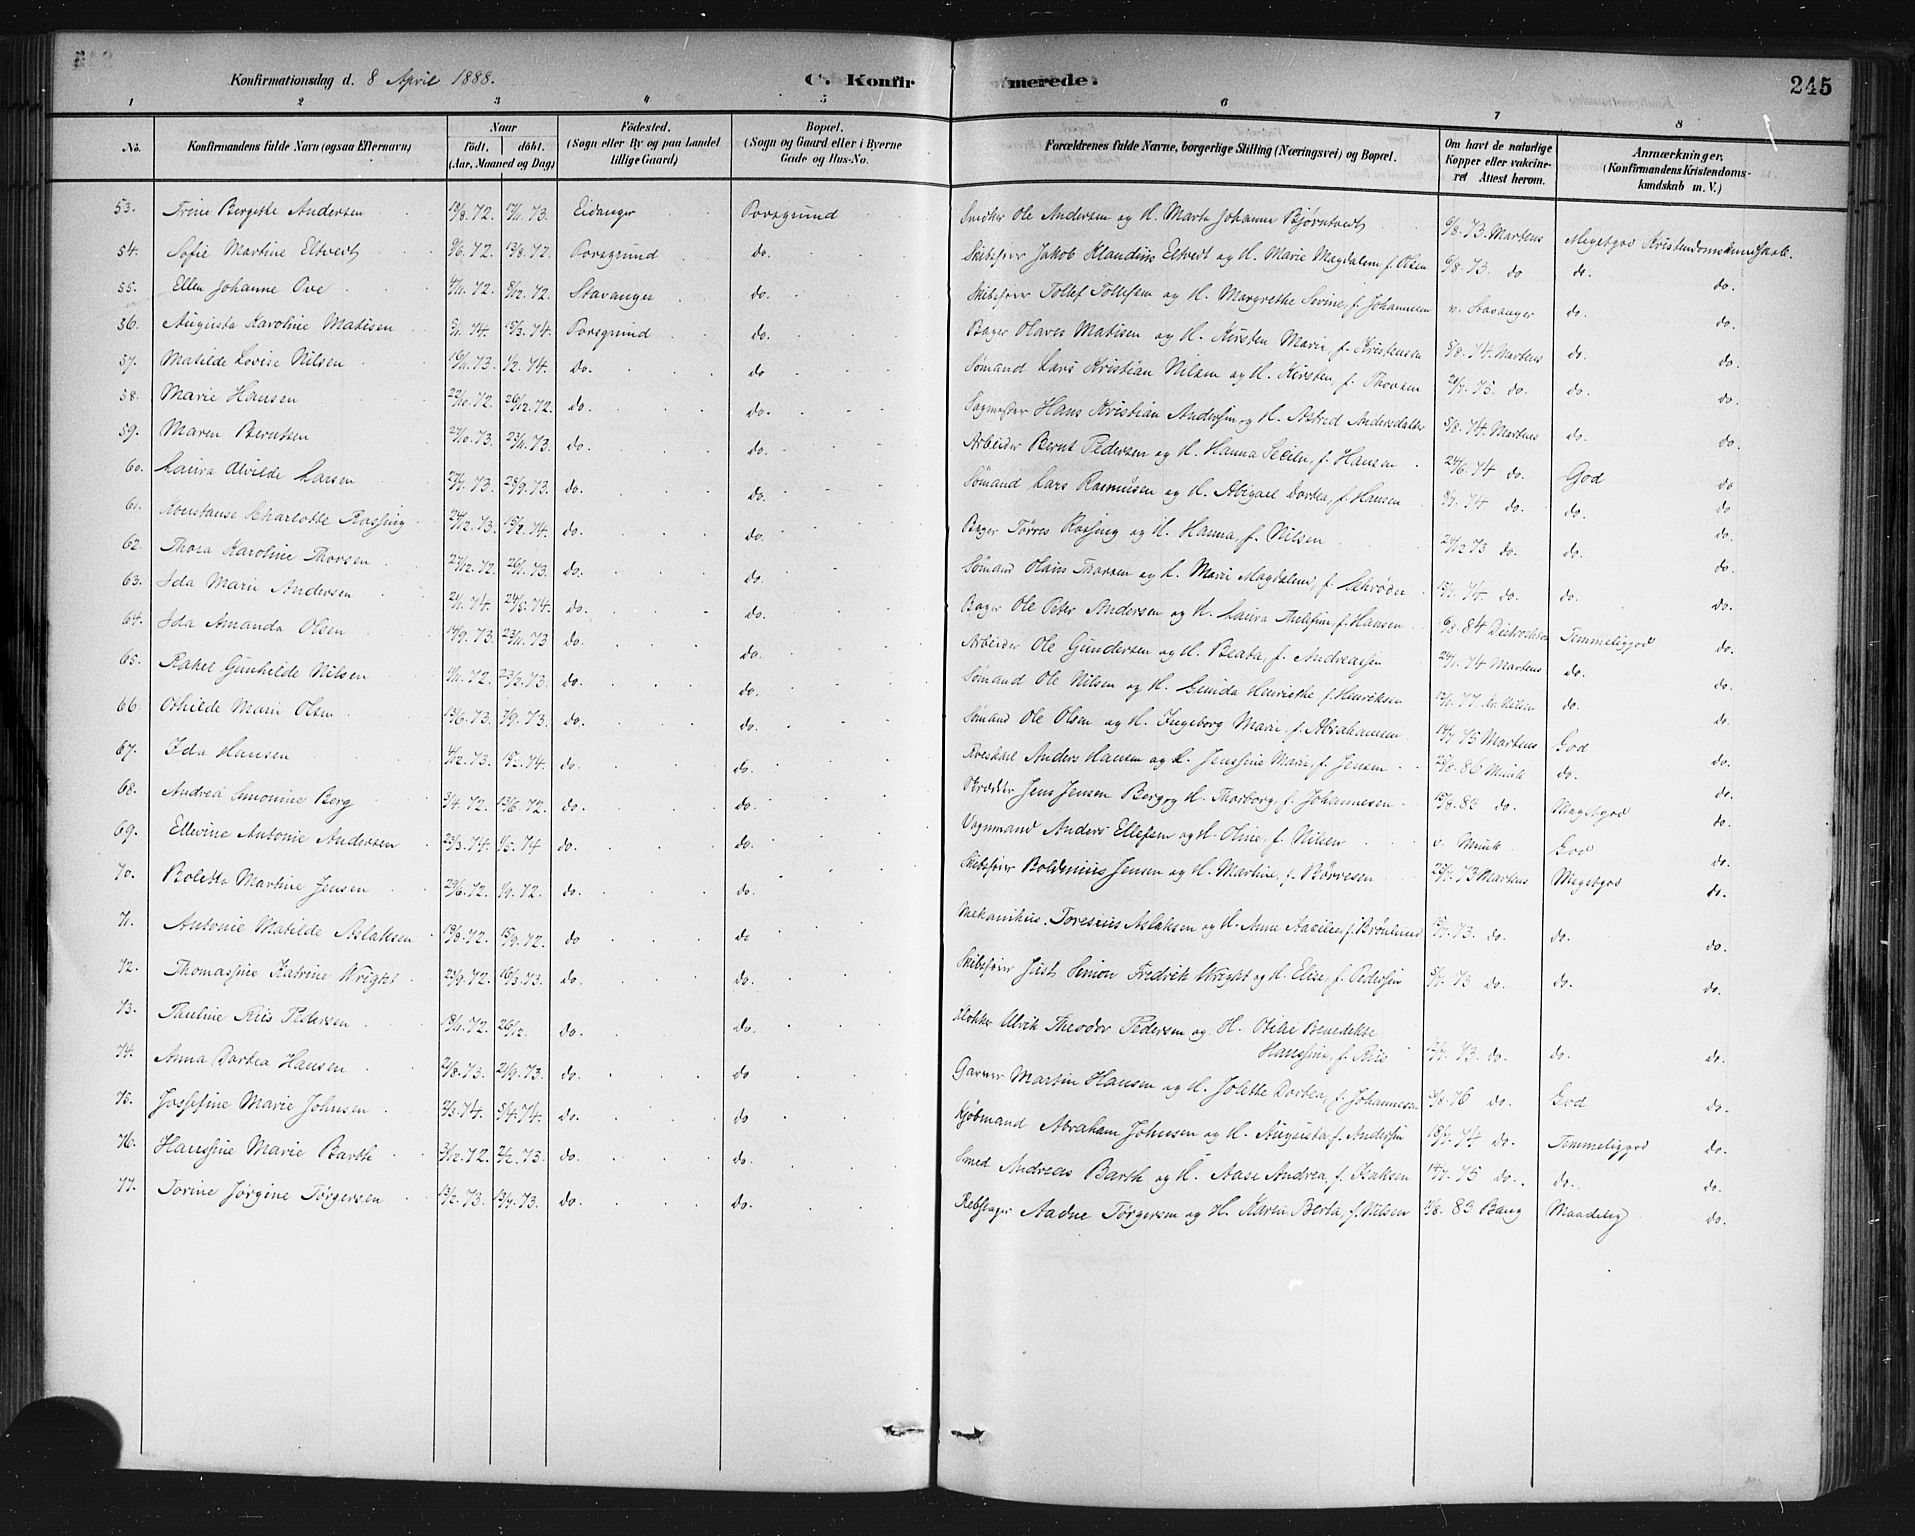 Konfirmationsdag d. 8 April 1888. C. Konfirmerede. 245
1 2 3 4 5 6 7 8
No. Konfirmandens fulde Navn (ogsaa Efternavn) Naar födt. döbt. (Aar, Maaned og Dag) Födested. (Sogn eller By og paa Landet tillige Gaard) Bopæl. (Sogn og Gaard eller i Byerne Gade og Hus-No. Forældrenes fulde Navne, borgerlige Stilling (Næringsvei) og Bopæl. Om havt de naturlige Kopper eller vakcineret Attest herom. Anmærkninger, (Konfirmandens Kristendomskundskab m. V.)
53. Trine Bergitte Andersen 72. 73. Eidanger Porsgrund Snedker Ole Andersen og H. Marta Johanne Bjørntvedt 6/8. 73. Martens Megetgod Kristendomskundskab.
54. Sofie Martine Eltvedt 9/6. 72. 18/8. 72. Porsgrund do. Skibsfører Jakob Klaudius Eltvedt og H. Marie Magdalene f. Olsen 6/8. 73. do do. do.
55. Ellen Johanne Ove 4/11. 72. 8/12. 72. Stavanger do. Skibsfører Tollef Tollefsen og H. Margrethe Serine, f. Johannesen v. Stavanger do. do.
56. Augusta Karoline Madisen 5/1. 74. 15/3. 74. Porsgrund do. Bager Olaves Madisen og H. Kirsten Marie, f. Kristensen 5/8. 74. Martens do. do.
57. Matilde Lovise Nilsen 16/11. 73. 1/2. 74. do. do Sømand Lars Kristian Nilsen og H. Kirsten, f. Thorsen 75. do do. do.
58. Marie Hansen 22/10. 72. 26/12. 72. do. do. Sagmester Hans Kristian Andersen og H. Astrid Andersdatter 5/8. 74. Martens do. do.
59. Maren Berntsen 27/10. 73. 23/11. 73. do. do. Arbeider Bernt Pedersen og H. Hanna Secilie, f. Hansen 24/6. 74 do. God do
60. Laura Alvilde Larsen 27/7. 73. 28/9. 73. do. do. Sømand Lars Rasmusen og H. Abigael Dortea, f. Hansen 74 do. do. do
61. Konstanse Scharlotte Rossing 24/12. 73. 15/2. 74. do. do. Bager Tørres Rossing og H. Hanna, f. Nilsen 73 do. do. do.
62. Thora Karoline Thorsen 27/12. 72. 26/1. 73. do. do. Sømand Olaus Thorsen og H. Marie Magdalene, f. Schrøder 74. do. do. do.
63. Ida Marie Andersen 2/1. 74. 24/5. 74. do. do. Bager Ole Peter Andersen og H. Laura Thelefine, f. Hansen 84 Temmeliggod do.
64. Ida Amanda Olsen 14/9. 73. 23/11. 73 do. do. Arbeider Ole Gundersen og H. Beata, f. Andreassen 74 Martens do. do.
65. Rakel Gunhilde Nilsen 72. 23/3. 73. do. do. Sømand Ole Nilsen og H. Gunda Henriette, f. Henriksen 77. Nilsen do. do.
66. Othilde Marie Olsen 13/6. 73. 7/9. 73. do. do. Sømand Ole Olsen og H. Ingeborg Marie, f. Abrahamsen 14/7 75 Martens God do.
67. Ida Hansen 4/12. 73. 15/2. 74. do. do. Anders Hansen og H. Jenssine Marie, f. Jensen 86 Munk do. do.
68. Andrea Simonine Berg 3/4. 72. 13/6. 72. do. do. Skredder Jens Jensen Berg og H. Thorborg, f. Johannesen 83 do. Megetgod do.
69. Ellevine Antonie Andersen 23/3. 74. 1/5. 74 do. do. Vognmand Anders Ellefsen og H. Oline, f. Nilsen v. Munk God do.
70. Boletta Martine Jensen 29/6. 72. 1/9. 72. do. do. Skibsfører Boldenius Jensen og H. Martine, f. Børresen 73 Martens Megetgod do.
71. Antonie Matilde Aslaksen 18/8. 72. 15/9. 72. do do Mekanikus Toresius Aslaksen og H. Anne f. Brønlund 73. do. do. do.
72. Thomassine Katrine Wright 23/9. 72. 16/3. 73. do. do. Skibsfører Just Simon Fredrik Wright og H. Elise, f. Pedersen 73 do. do. do.
73. Pauline Riis Pedersen 18/11. 72. 26/12. do. do. Klokker Ulrik Theodor Pedersen og H. Otilie Benedikte
Hanssine, f. Riis 73. do. do. do.
74. Anna Dortea Hansen 2/8. 73. 21/9. 73. do. do Garver Martin Hansen og H. Jolette Dortea, f. Johannesen 76 do. God do.
75. Jossefine Marie Johnsen 2/3. 74. 5/4. 74. do. do Kjøbmand Abraham Johnsen og H. Augusta, f. Andersen 18/7. 74 do. Temmeliggod do.
76. Hanssine Marie Barth 3/12. 72. 2/2. 73. do. do. Smed Andreas Barth og H. Aase Andrea, f. Isaksen 14/7. 75 do. do. do.
77. Torine Jørgine Tørgersen 13/2. 73. 13/7. 73. do. do. Rebslager Aadne Tørgersen og H. Karen Berta, f. Nilsen 83 Bang Maadelig do.